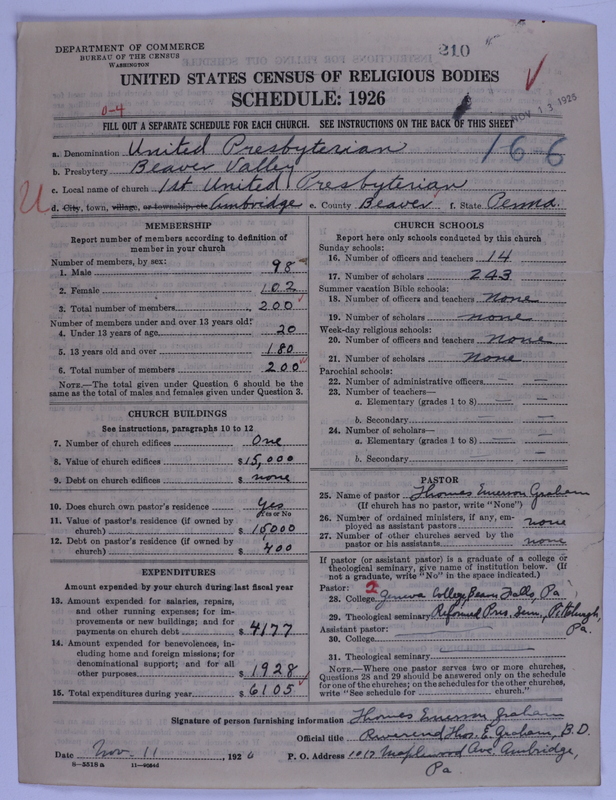 DEPARTMENT OF COMMERCE
BUREAU OF THE CENSUS
WASHINGTON
210
UNITED STATES CENSUS OF RELIGIOUS BODIES
SCHEDULE: 1926
0-4
NOV 13 1926
FILL OUT A SEPARATE SCHEDULE FOR EACH CHURCH. SEE INSTRUCTIONS ON THE BACK OF THIS SHEET
166
a. Denomination United Presbyterian
b. Presbytery Beaver Valley
c. Local name of church 1st United Presbyterian
U
d. City, town, village, or township, etc Ambridge e. County Beaver f. State Penna.
MEMBERSHIP
Report number of members according to definition of member in your church
Number of members, by sex:
1. Male 98
2. Female 102
3. Total number of members 200
Number of members under and over 13 years old:
4. Under 13 years of age 20
5. 13 years old and over 180
6. Total number of members 200
NOTE.—The total given under Question 6 should be
same as the total of males and females given under Question 3.
CHURCH BUILDINGS
See instructions, paragraphs 10 to 12
7. Number of church edifices One
8. Value of church edifices $15,000
9. Debt on church edifices $ none
10. Does church own pastor's residence Yes
Yes or No
11. Value of pastor's residence (if owned by
church) $ 15000
12. Debt on pastor's residence (if owned by
church) $ 400
EXPENDITURES
Amount expended by your church during last fiscal year
13. Amount expended for salaries, repairs,
and other running expenses; for im-
provements or new buildings; and for
payments on church debt $ 4177
14. Amount expended for benevolences, in-
cluding home and foreign missions; for
denominational support; and for all
other purposes $ 1928
15. Total expenditures during year $ 6105
CHURCH SCHOOLS
Report here only schools conducted by this church
Sunday schools:
16. Number of officers and teachers 14
17. Number of scholars 243
Summer vacation Bible schools:
18. Number of officers and teachers none
19. Number of scholars none
Week-day religious schools:
20. Number of officers and teachers none
21. Number of scholars none
Parochial schools:
22. Number of administrative officers
23. Number of teachers—
a. Elementary (grades 1 to 8)
b. Secondary
24. Number of scholars—
a. Elementary (grades 1 to 8)
b. Secondary
PASTOR
25. Name of pastor Thomas Emerson Graham
(If church has no pastor, write "None")
26. Number of ordained ministers, if any, em-
ployed as assistant pastors none
27. Number of other churches served by the
pastor or his assistants none
If pastor (or assistant pastor) is a graduate of a college or
theological seminary, give name of institution below. (If
not a graduate, write "No" in the space indicated.)
Pastor: 2
28. College Geneva College Beaver Falls, Pa
29. Theological seminary Reformed Pres. Sem., Pittsburgh, Pa.
Assistant pastor:
30. College
31. Theological seminary
NOTE.—Where one pastor serves two or more churches,
Questions 28 and 29 should be answered only on the schedule
for one of the churches; on the schedules for the other churches,
write "See schedule for church."
Signature of person furnishing information Thomas Emerson Graham
Official title Reverend Thos. E. Graham, B.D.
Date Nov. 11, 1926 P. O. Address 1017 Maplewood Ave. Ambridge,
Pa.